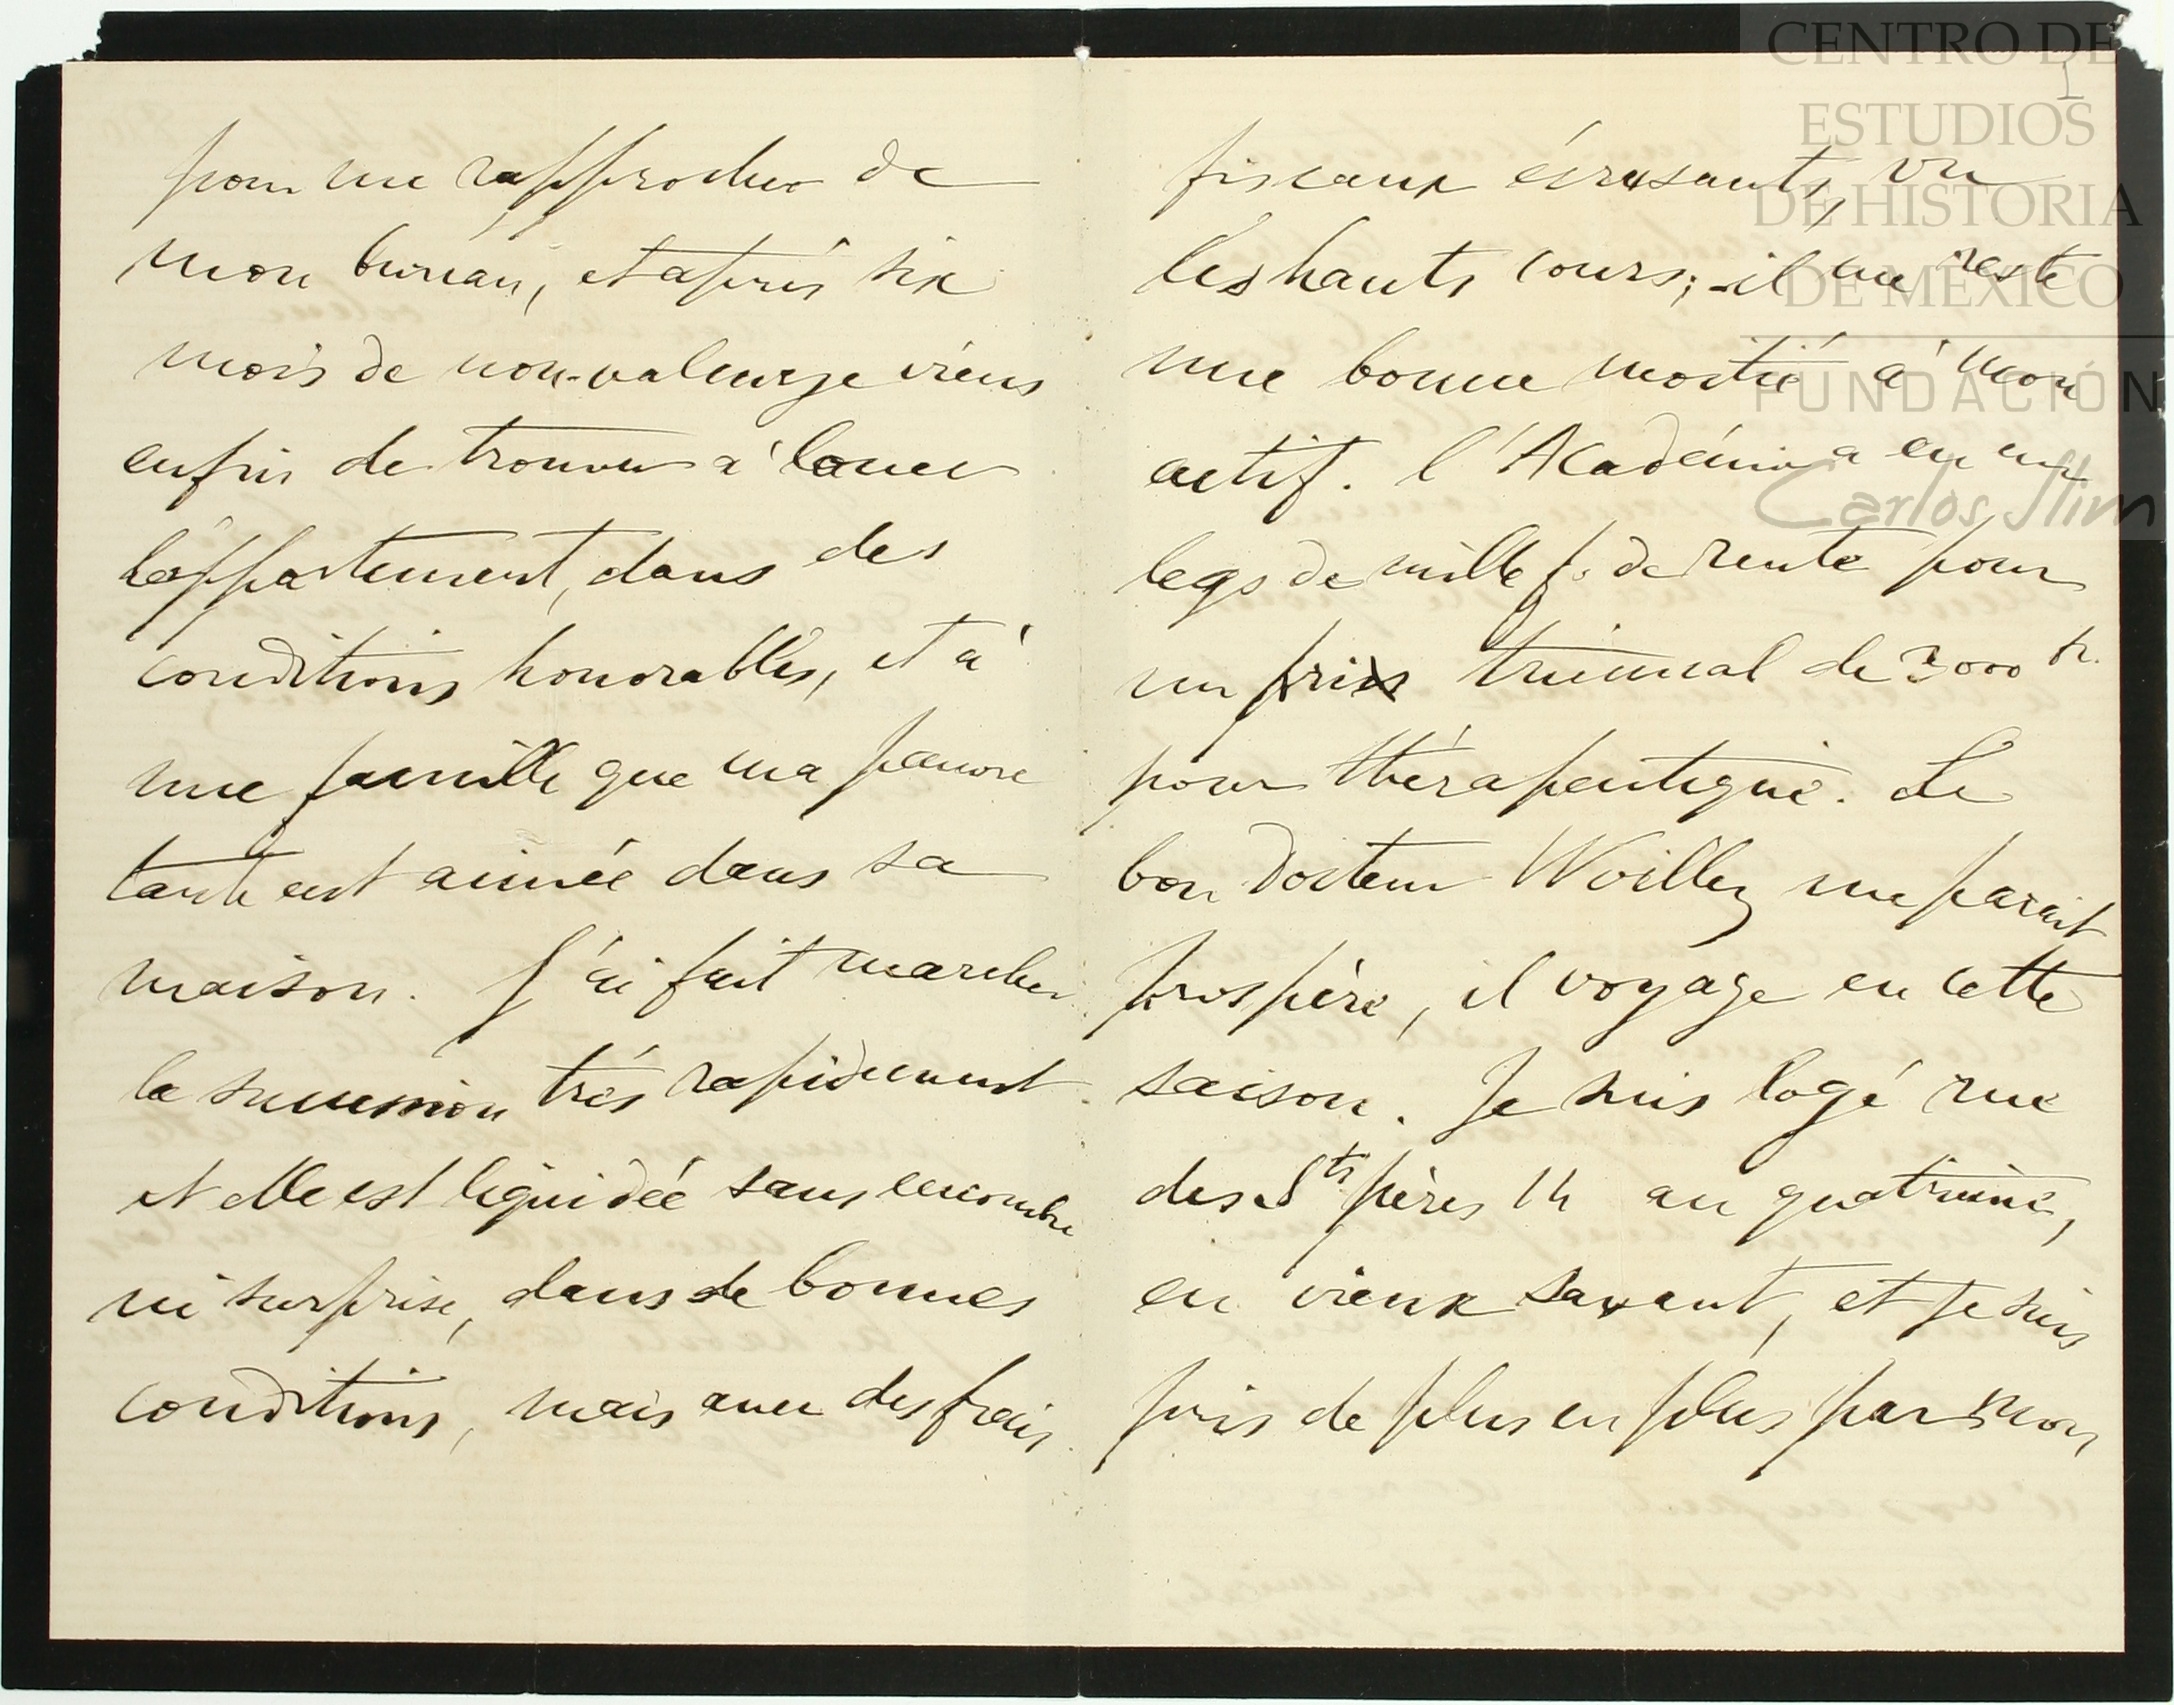 pour me rapprocher de
mon bureau, et après six
mois de non-valeur je viens
enfin de trouver à louer
l'appartement, dans des
conditions honorables, et à
une famille que ma pauvre
tante eut aimée dans sa
maison. J'ai fait marcher
la succession très rapidement
et elle est liquidée sans encombre
ni surprise, dans de bonnes
conditions, mais avec des frais
1
fiscaux écrasants, vu
les hauts cours; il me reste
une bonne moitié à mon
actif. l'Académie a eu un
legs de mille f. de rente pour
un prix triennal de 3000 fr.
pour thérapeutique. Le
bon Docteur Woillez me parait
prospère, il voyage en cette
saison. Je suis logé rue
des Sts pères 14 au quatrième,
en vieux savant, et je suis
pris de plus en plus par mon
CENTRO DE
ESTUDIOS
DE HISTORIA
DE MÉXICO
FUNDACIÓN
Carlos Slim